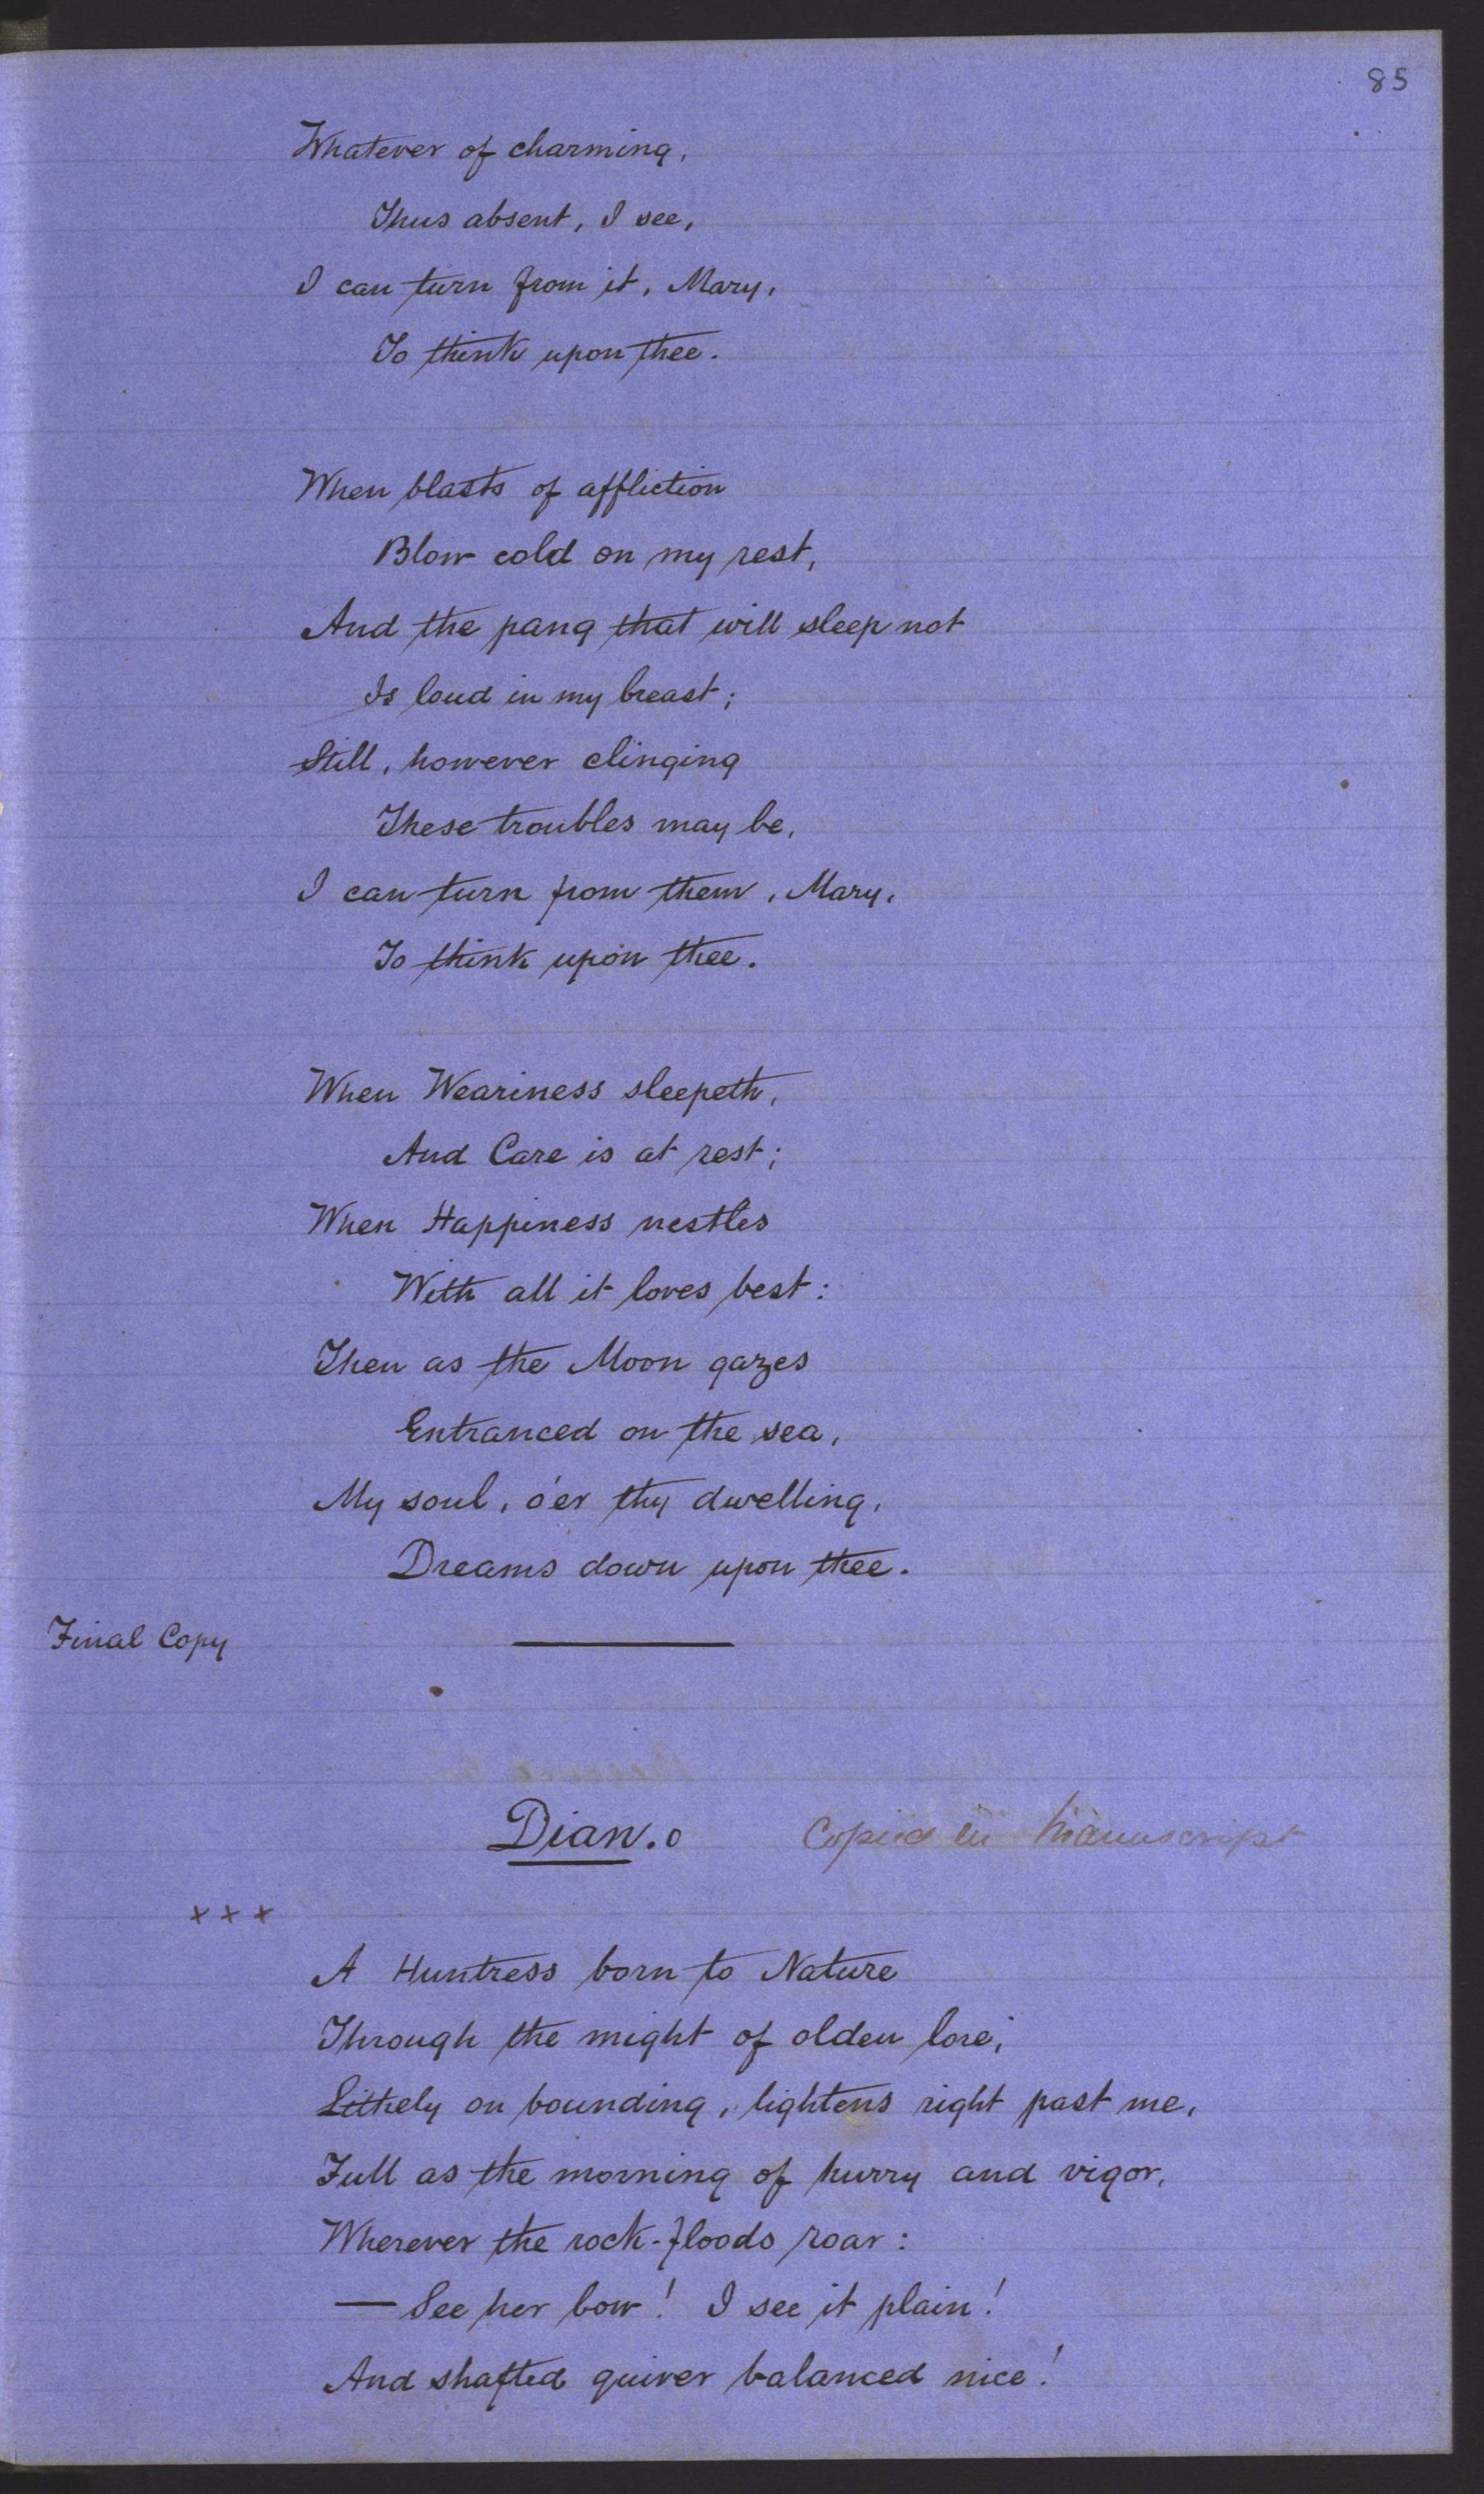 85
Whatever of charming,
Thus absent, I see,
I can turn from it, Mary,
To think upon thee.
When blasts of affliction
Blow cold on my rest,
And the pang that will sleep not
Is loud in my breast;
Still, however clinging
These troubles may be,
I can turn from them, Mary,
To think upon thee.
When Weariness sleepeth,
And Care is at rest;
When Happiness nestles
With all it loves best:
Then as the Moon gazes
Entranced on the sea,
My soul, o'er thy dwelling,
Dreams down upon thee.
Final Copy
Dian. o Copied in Manuscript
+ + +
A Huntress born to Nature
Through the might of olden lore,
Lithely on bounding, lightens right past me,
Full as the morning of hurry and vigor,
Wherever the rock-floods roar:
— See her bow! I see it plain!
And shafted quiver balanced nice!